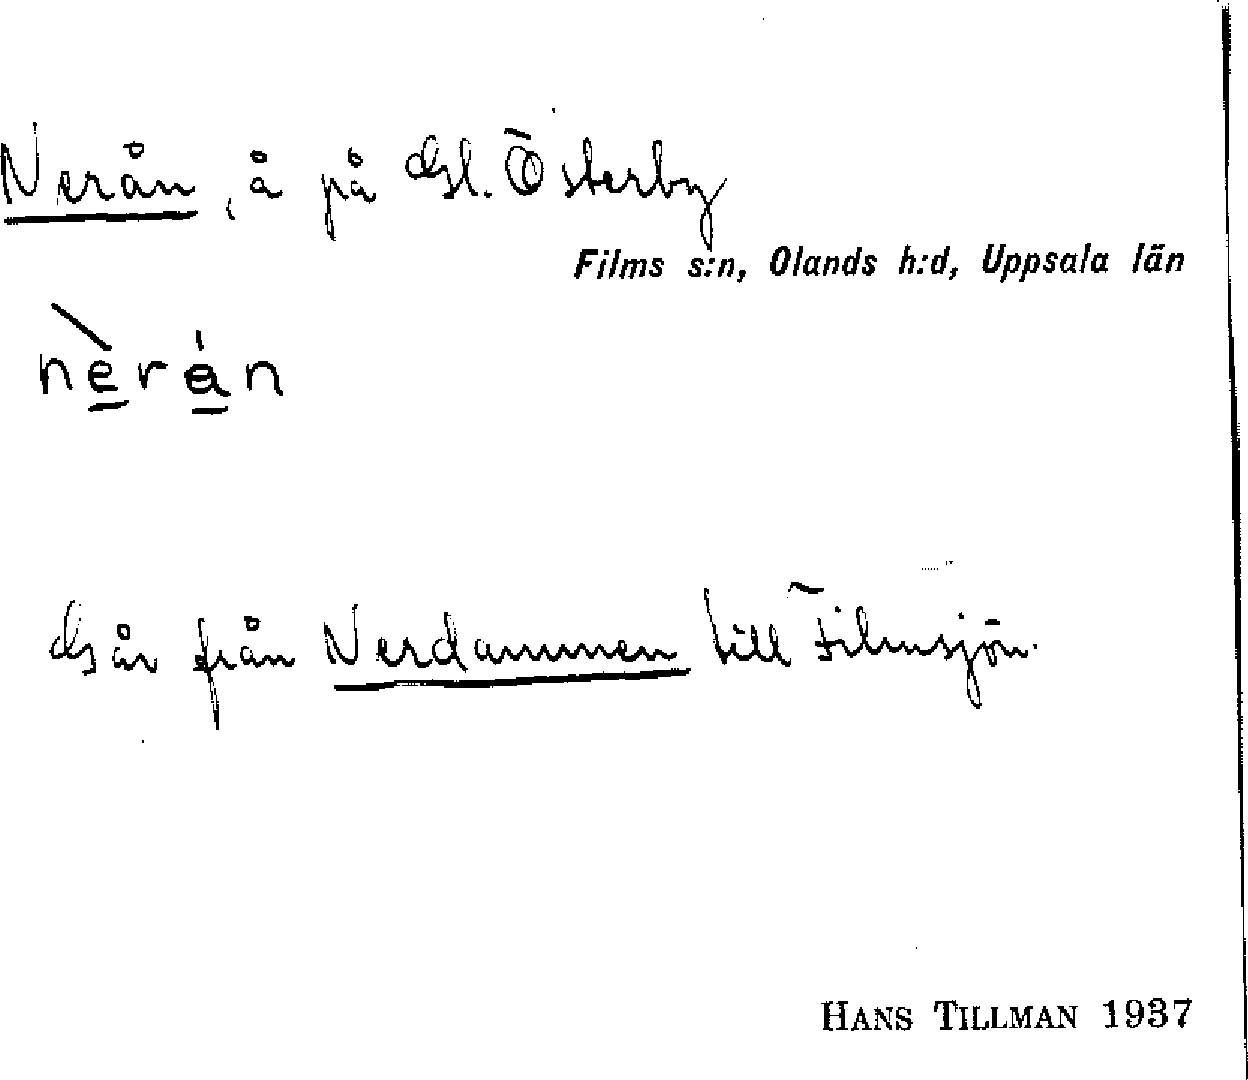 Nerån, å på Gl. Österby
Films s:n, Olands h:d, Uppsala län
nèrån
Går från Nerdammen till Filmsjön.
HANS TILLMAN 1937